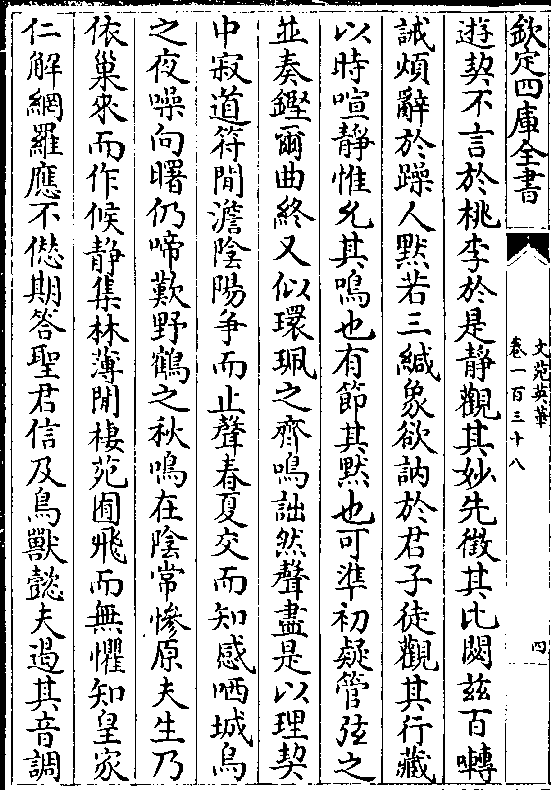 欽定四庫全書
文苑英華
卷一百三十八
四
遊契不言於桃李於是静觀其妙先徵其比闋兹百囀
誡煩辭於躁人黙若三緘象欲訥於君子徒觀其行藏
以時喧静惟允其鳴也有節其黙也可凖初疑管弦之
並奏鏗爾曲終又似環珮之齊鳴詘然聲盡是以理契
中寂道符閒澹隂陽争而止聲春夏交而知感哂城烏
之夜噪向曙仍啼歎野鶴之秋鳴在陰常惨原夫生乃
依巢來而作候静集林薄閒棲苑囿飛而無懼知皇家
仁解網羅應不愆期答聖君信及鳥獸懿夫過其音調